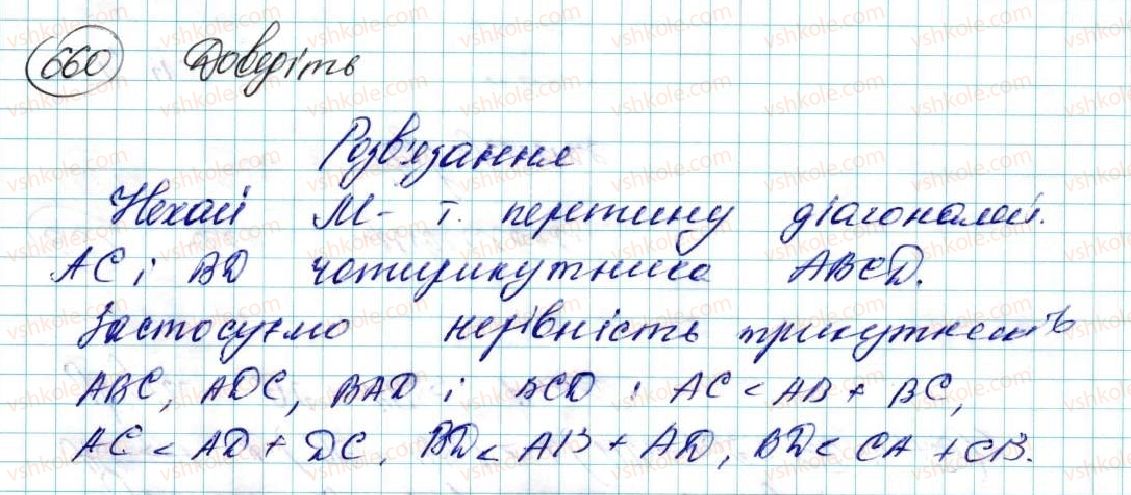 660 Доведіть
Розв'язання
Нехай М - т. перетину діагоналей.
АС і BD чотирикутника ABCD.
Застосуємо нерівність трикутників
ABC, ADC, BAD і BCD : AC < AB + BC,
AC < AD + DC, BD < AB + AD, BD < CA + CB.